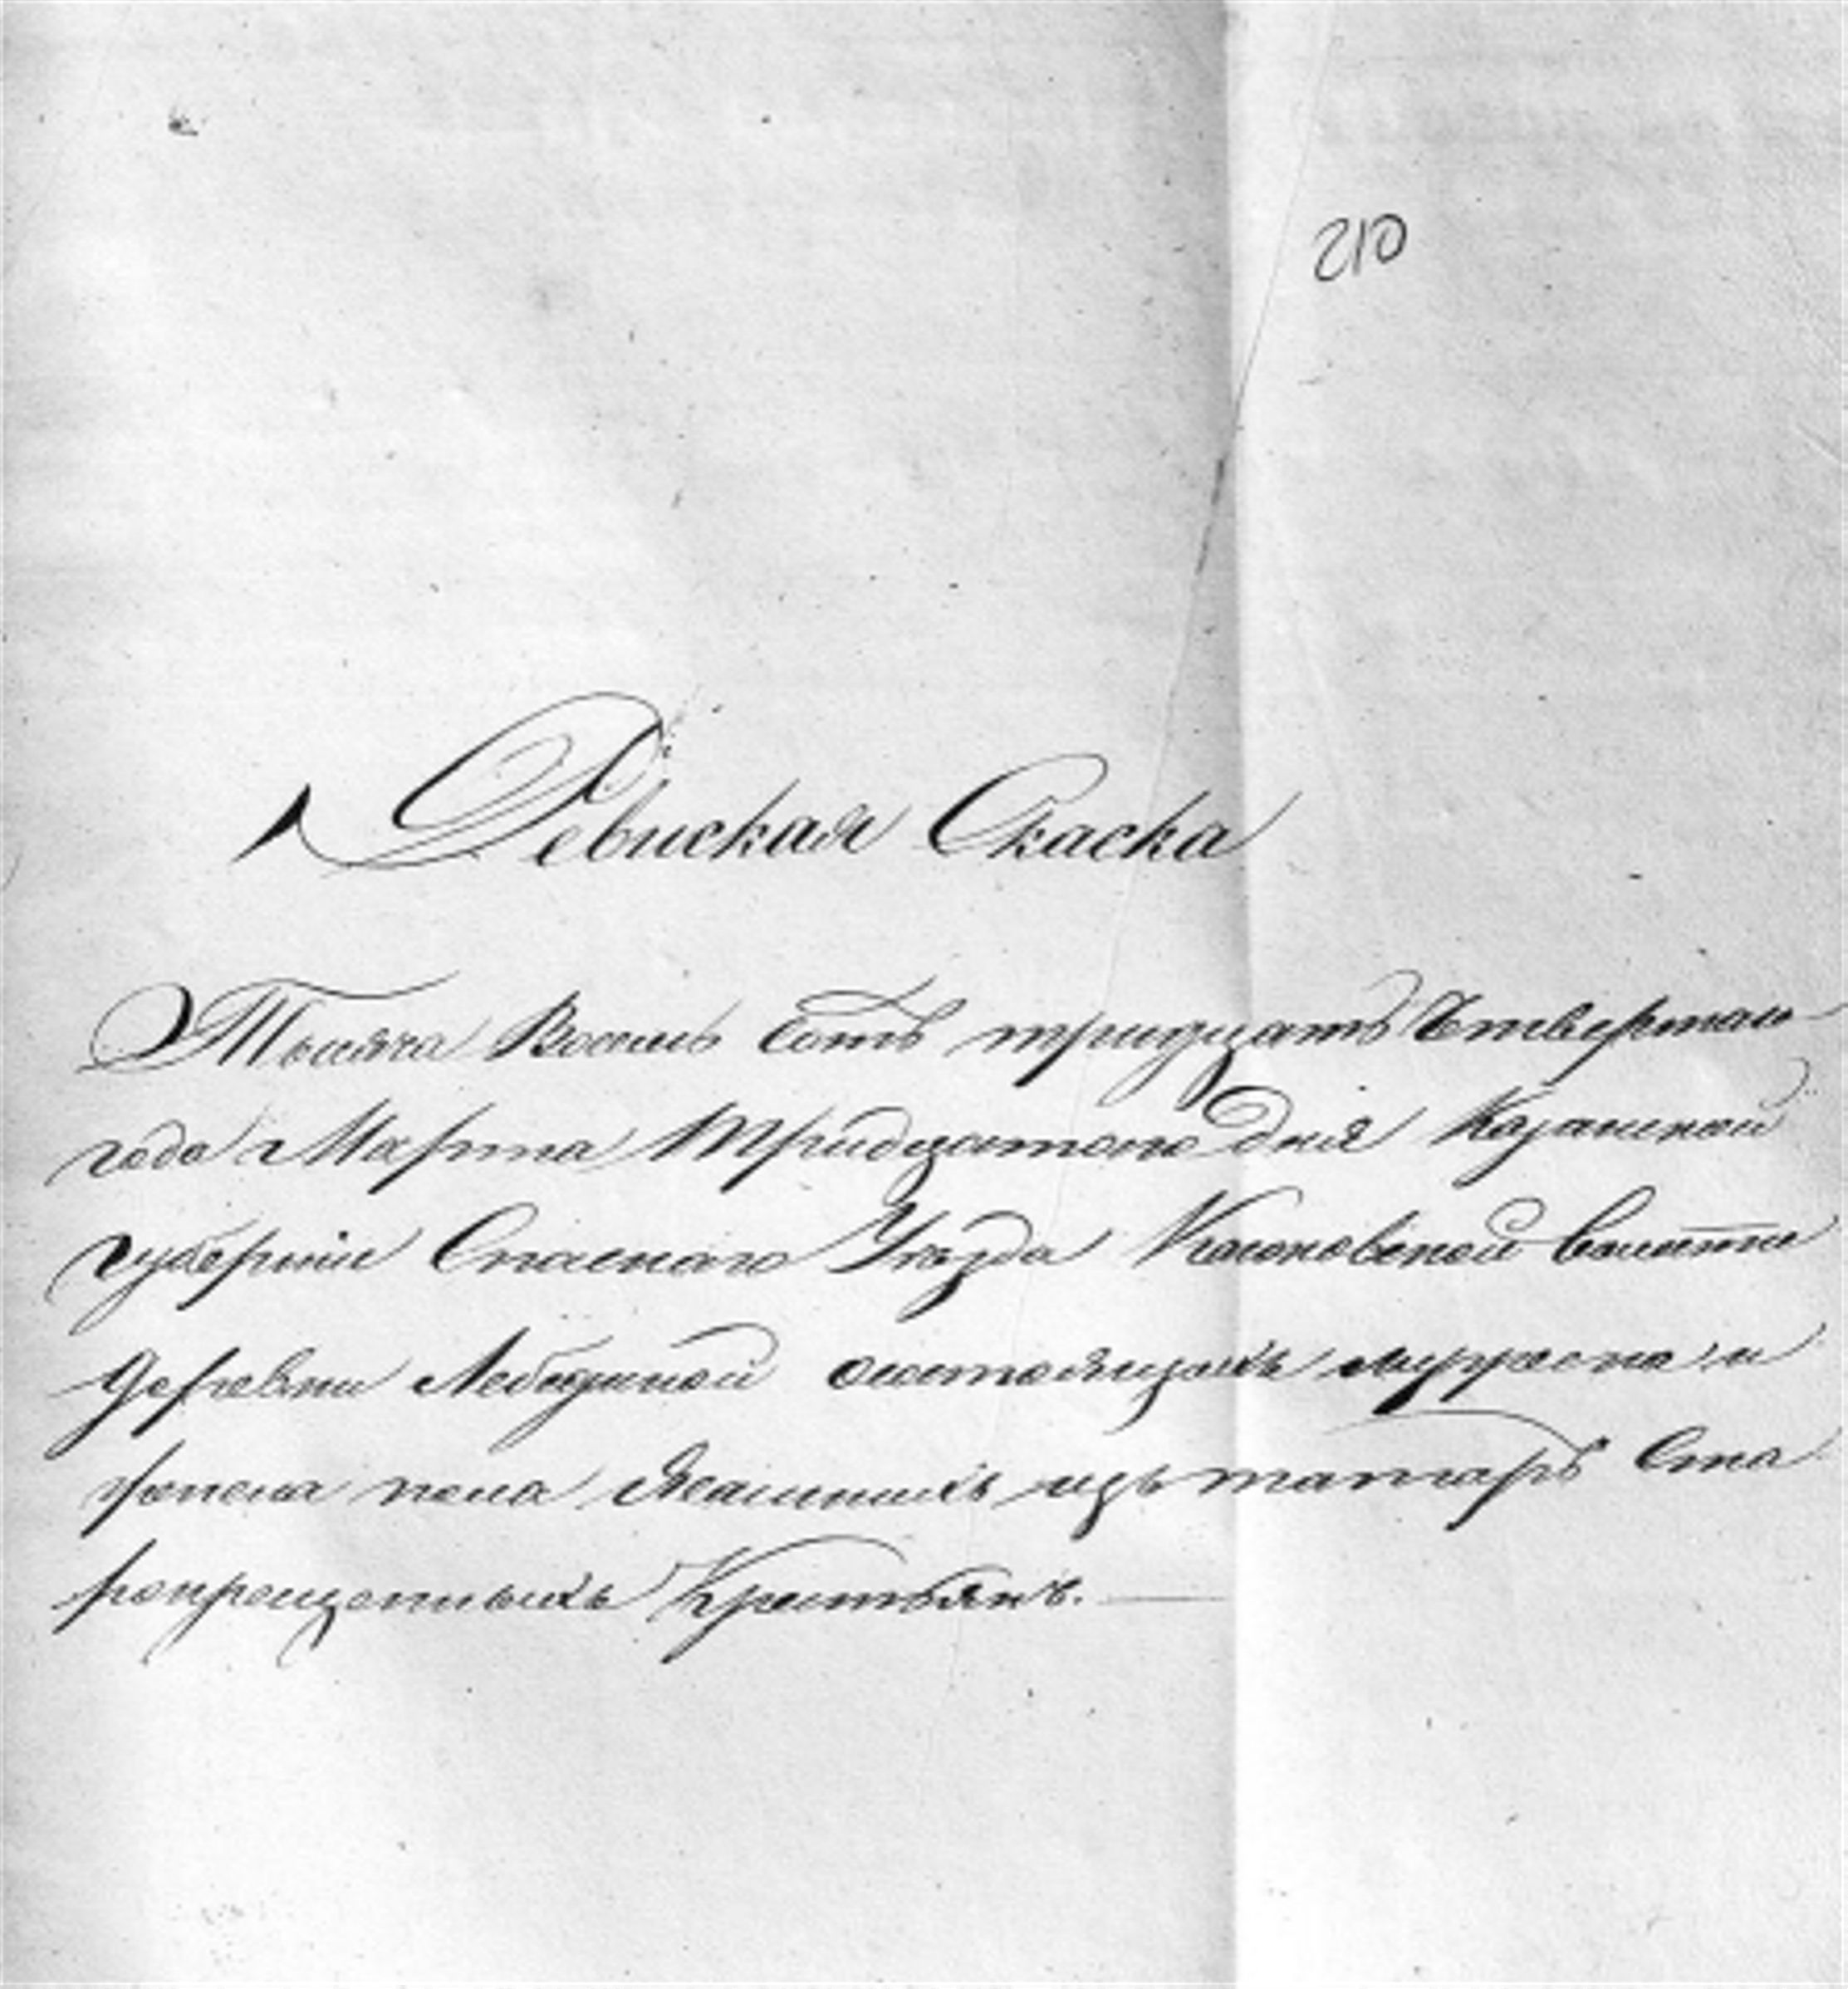 210
Ревиская Скаска
Тысяча Восемь сотъ тридцать Четвертаго
года Марта Тридцатого дня Казанской
губерніи Спаского Уезда волости
деревни Лебяжьей состоящихъ мужеска и
женска пола Ясашныхъ изъ татаръ Ста
рокрещенныхъ Крестьянъ.